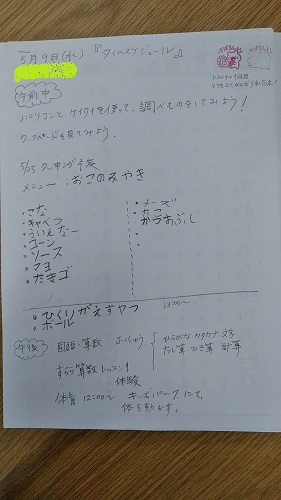 5月9日(水) 『タイムスケジュール』
午前中
パソコンと、ケイタイを使って、調べものをしてみよう!
クックパードを見てみよう。
5/25 クッキング予定
メニュー:おこのみやき
・キャベつ
・ういんなー
・コーン
・ソース
・マヨ
・たまゴ
・チーズ
・たこ
・かつおぶし
・ひくりがえすヤつ 13:00〜
・ボール
午後
国語・算数 ふくしゅう
ひらがな・カタカナ 文字
たし算 ひき算 計算
すらら算数 レッスン1
体験
体育 12:00〜 キッズパークにて、
体を動かす。